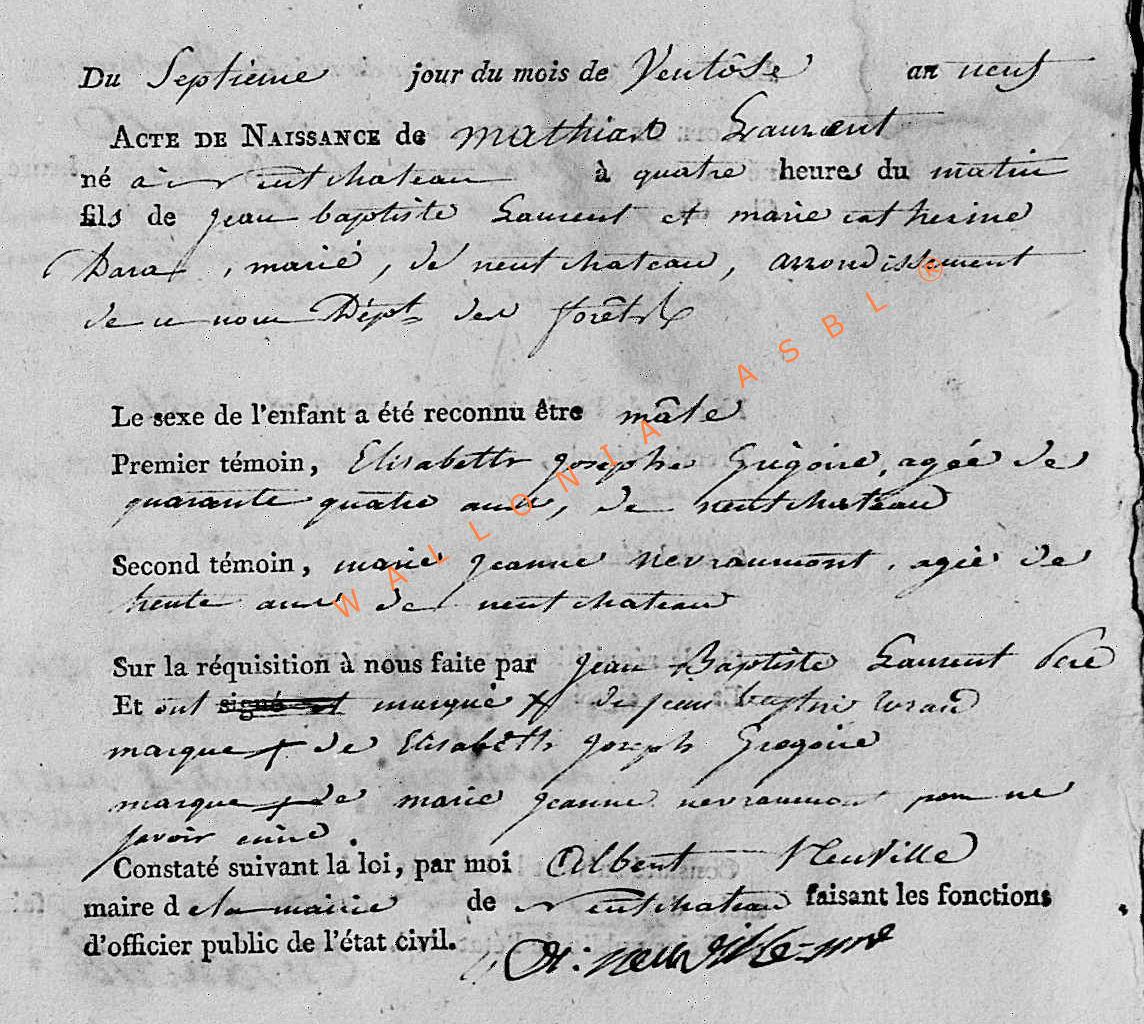 Du Septieme jour du mois de Ventôse an neuf
ACTE DE NAISSANCE de mathias Laurent
né à neufchateau à quatre heures du matin
fils de jean baptiste Laurent et marie catherine
marié, de neufchateau, arrondissement
de ce nom Dépt. des forêts
Le sexe de l'enfant a été reconnu être mâle
Premier témoin, Elisabeth Josephe Grégoire, agée de
quarante quatre ans, de neufchateau
Second témoin, marie jeanne nevraumont, agée de
trente ans de neufchateau
Sur la réquisition à nous faite par jean Baptiste Laurent Pere
Et ont signé et marque + de jean
marque + de Elisabeth Joseph Gregoire
marque + de marie jeanne nevraumont pour ne
savoir ecrire.
Constaté suivant la loi, par moi Albert Neuville
maire d e la mairie de neufchateau faisant les fonctions
d'officier public de l'état civil.
WALLONIA ASBL ®